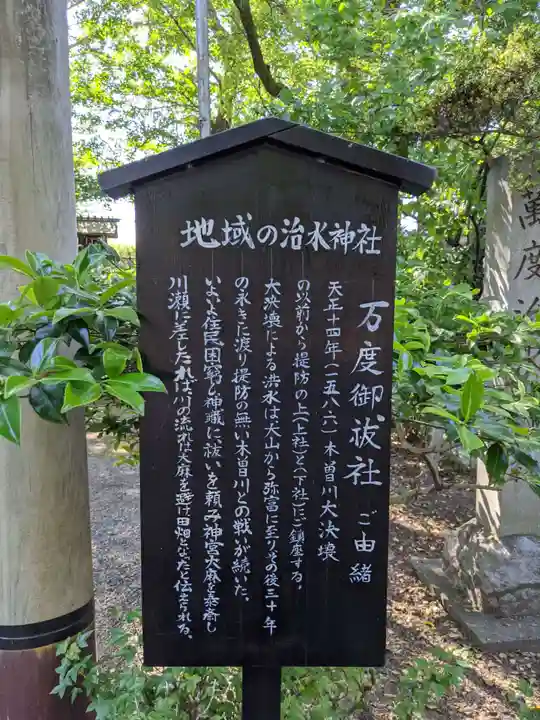 地域の治水神社
万度御祓社 ご由緒
天正十四年(一五八六)木曽川大決壊
の以前から提防の上(上社)と(下社)にご鎮座する。
大決壊による洪水は犬山から弥富に至りその後三十年
の永きに渡り提防の無い木曽川との戦いが続いた。
いよいよ住民困窮し神職に祓いを頼み神宮大麻を奉斎し
川瀬に差したれば川の流れは大麻を避け田畑となったと伝えられる。
萬度